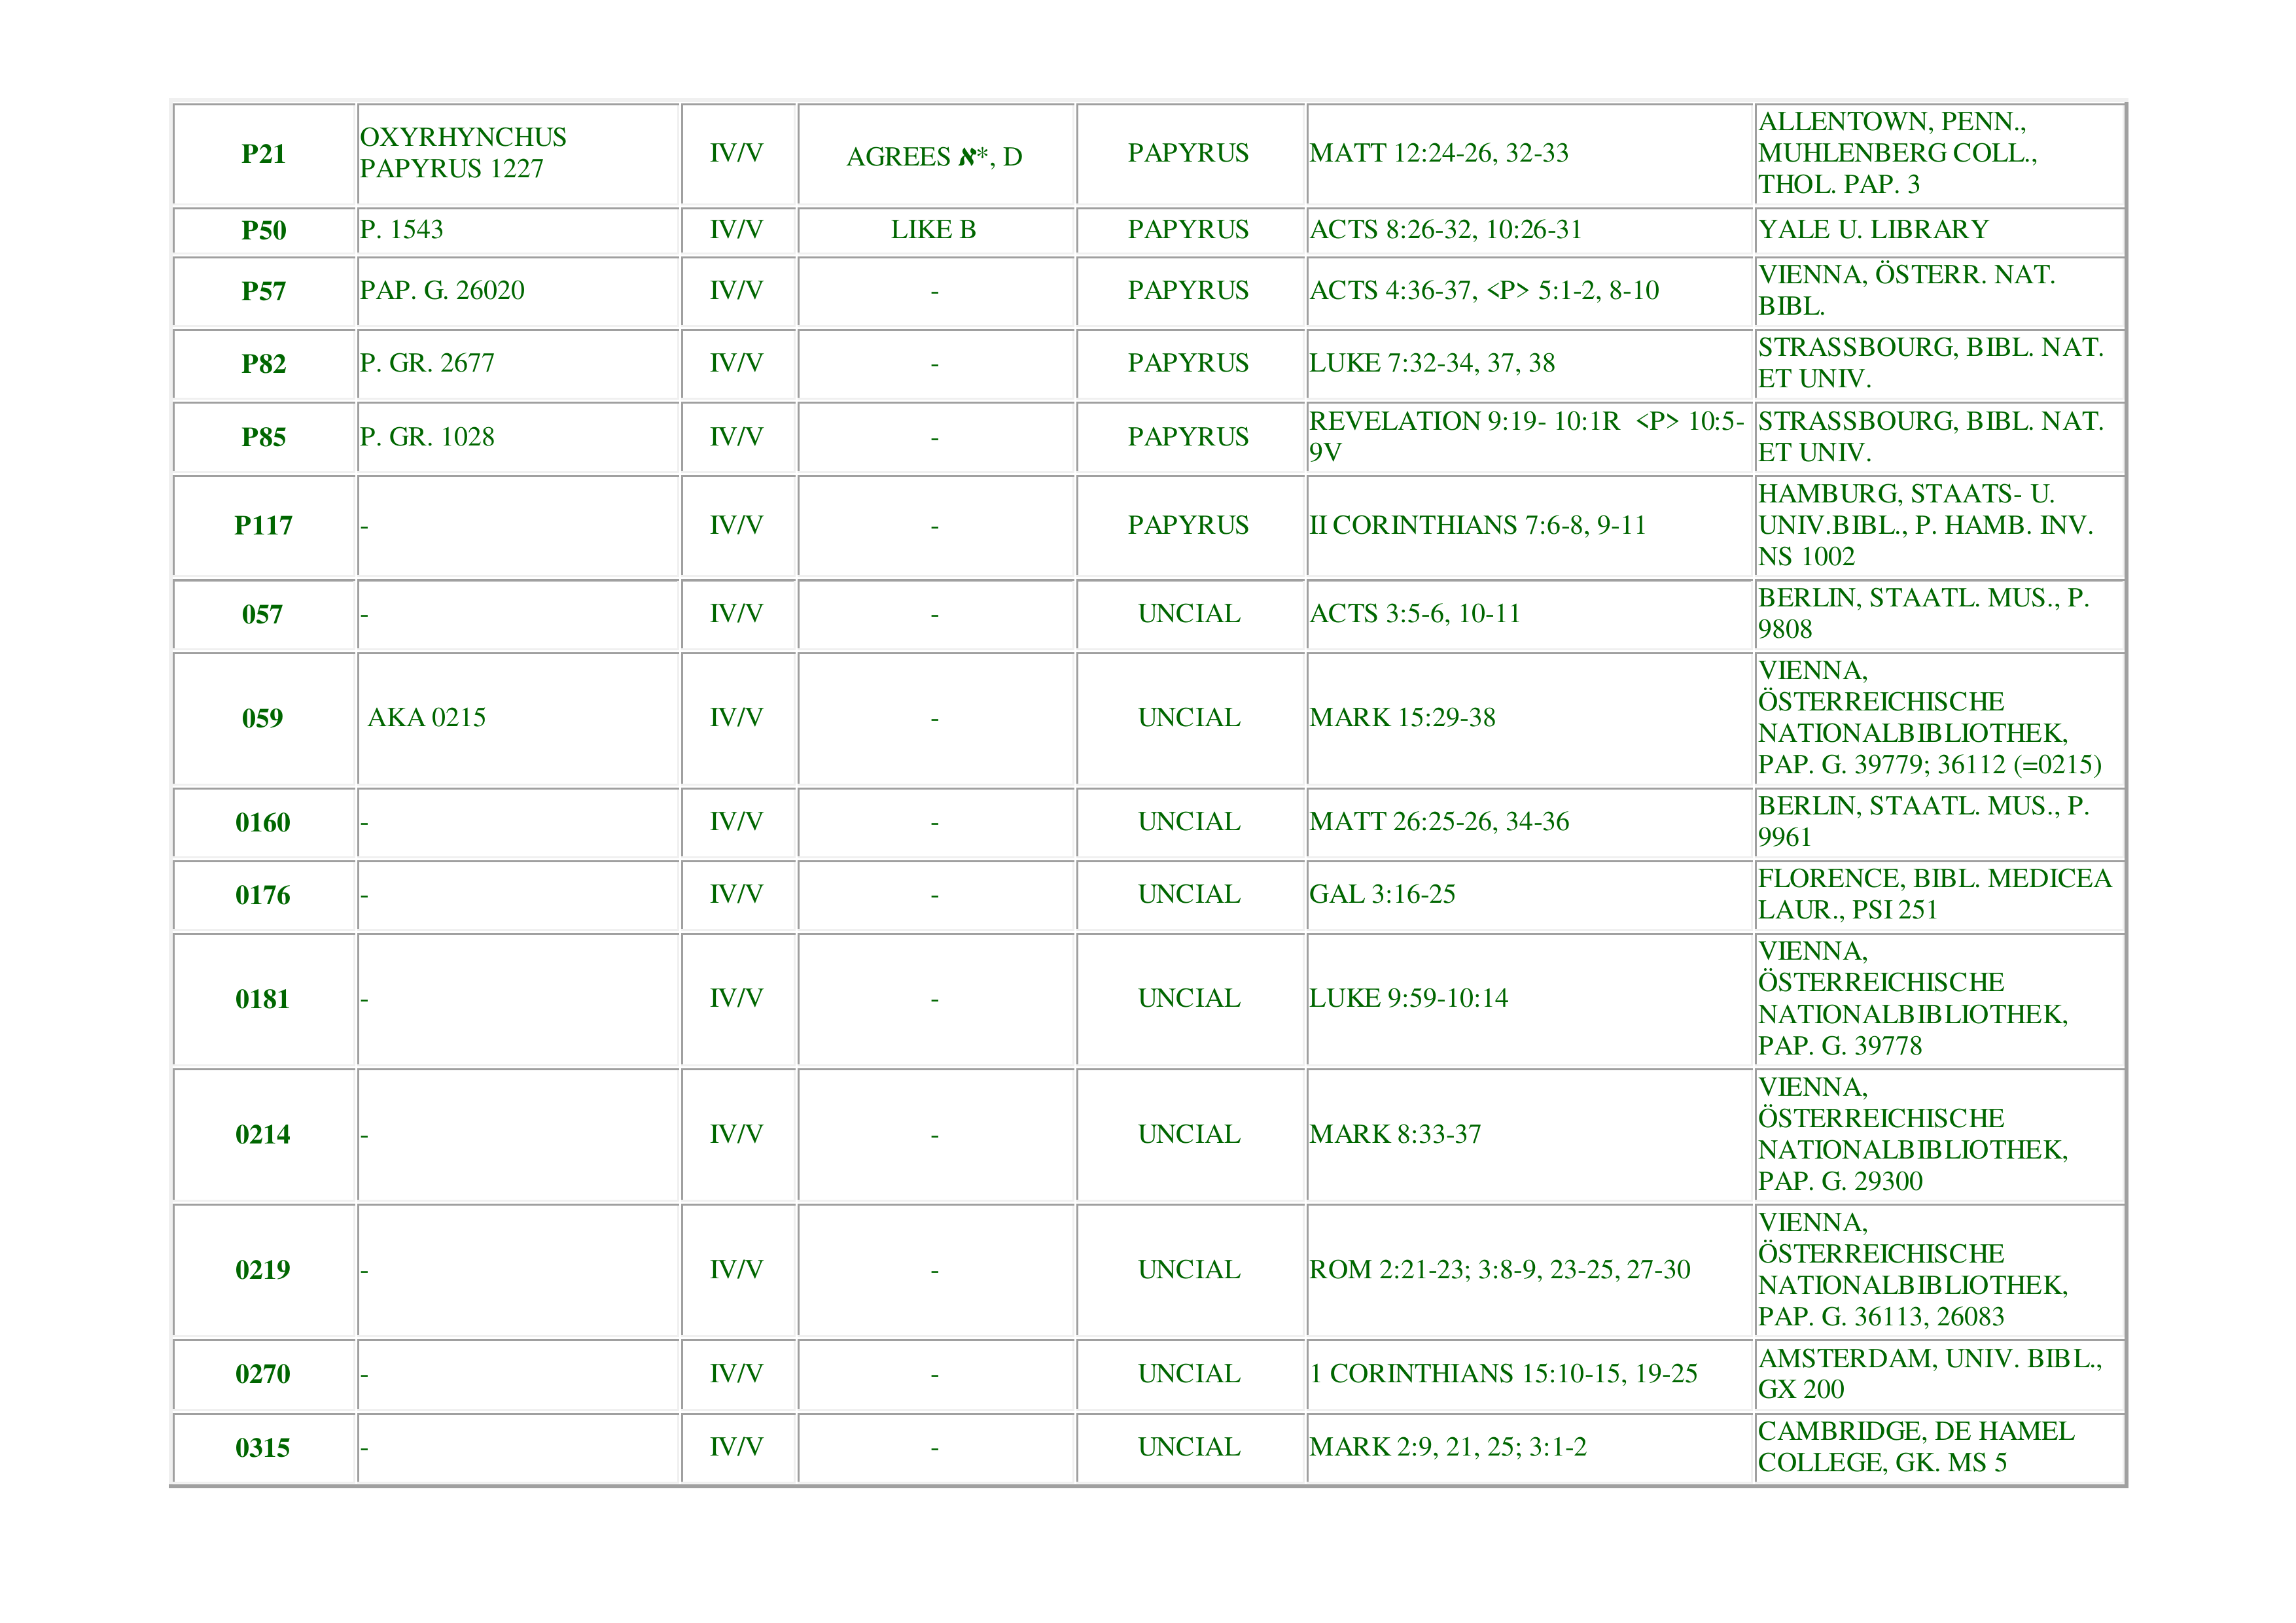 P21 OXYRHYNCHUS PAPYRUS 1227 IV/V AGREES א*, D PAPYRUS MATT 12:24-26, 32-33 ALLENTOWN, PENN., MUHLENBERG COLL., THOL. PAP. 3
P50 P. 1543 IV/V LIKE B PAPYRUS ACTS 8:26-32, 10:26-31 YALE U. LIBRARY
P57 PAP. G. 26020 IV/V - PAPYRUS ACTS 4:36-37, <P> 5:1-2, 8-10 VIENNA, ÖSTERR. NAT. BIBL.
P82 P. GR. 2677 IV/V - PAPYRUS LUKE 7:32-34, 37, 38 STRASSBOURG, BIBL. NAT. ET UNIV.
P85 P. GR. 1028 IV/V - PAPYRUS REVELATION 9:19- 10:1R <P> 10:5-9V STRASSBOURG, BIBL. NAT. ET UNIV.
P117 - IV/V - PAPYRUS II CORINTHIANS 7:6-8, 9-11 HAMBURG, STAATS- U. UNIV.BIBL., P. HAMB. INV. NS 1002
057 - IV/V - UNCIAL ACTS 3:5-6, 10-11 BERLIN, STAATL. MUS., P. 9808
059 AKA 0215 IV/V - UNCIAL MARK 15:29-38 VIENNA, ÖSTERREICHISCHE NATIONALBIBLIOTHEK, PAP. G. 39779; 36112 (=0215)
0160 - IV/V - UNCIAL MATT 26:25-26, 34-36 BERLIN, STAATL. MUS., P. 9961
0176 - IV/V - UNCIAL GAL 3:16-25 FLORENCE, BIBL. MEDICEA LAUR., PSI 251
0181 - IV/V - UNCIAL LUKE 9:59-10:14 VIENNA, ÖSTERREICHISCHE NATIONALBIBLIOTHEK, PAP. G. 39778
0214 - IV/V - UNCIAL MARK 8:33-37 VIENNA, ÖSTERREICHISCHE NATIONALBIBLIOTHEK, PAP. G. 29300
0219 - IV/V - UNCIAL ROM 2:21-23; 3:8-9, 23-25, 27-30 VIENNA, ÖSTERREICHISCHE NATIONALBIBLIOTHEK, PAP. G. 36113, 26083
0270 - IV/V - UNCIAL 1 CORINTHIANS 15:10-15, 19-25 AMSTERDAM, UNIV. BIBL., GX 200
0315 - IV/V - UNCIAL MARK 2:9, 21, 25; 3:1-2 CAMBRIDGE, DE HAMEL COLLEGE, GK. MS 5